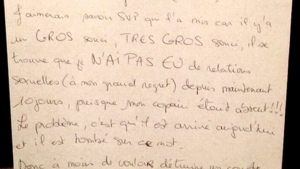 J'aimerais savoir SVP qui l'a mis car il y'a
un GROS souci, TRES GROS souci, il se
trouve que je N'AI PAS EU de relations
sexuelles (à mon grand regret) depuis maintenant
10 jours, puisque mon copain étant absent!!!
Le problème, c'est qu'il est arrivé aujourd'hui
et il est tombé sur ce mot.
Donc à moins de vouloir détruire un couple